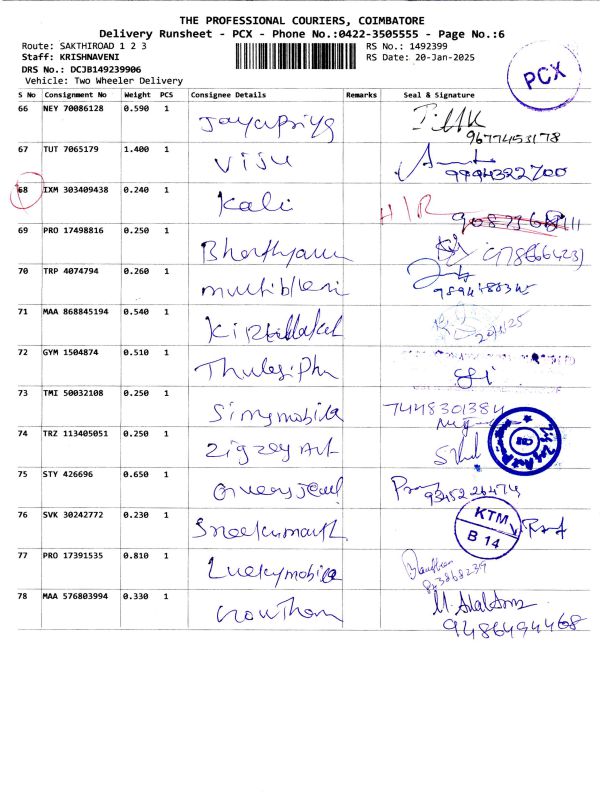 THE PROFESSIONAL COURIERS, COIMBATORE
Delivery Runsheet - PCX - Phone No.:0422-3505555 - Page No.:6
Route: SAKTHIROAD 1 2 3
RS No.: 1492399
Staff: KRISHNAVENI
RS Date: 20-Jan-2025
DRS No.: DCJB149239906
Vehicle: Two Wheeler Delivery
PCX
S No Consignment No Weight PCS Consignee Details Remarks Seal & Signature
66 NEY 70086128 0.590 1 Jayapriya
9677453178
67 TUT 7065179 1.400 1 Viju
9994322700
68 IXM 303409438 0.240 1 Kali H/R
69 PRO 17498816 0.250 1
70 TRP 4074794 0.260 1
71 MAA 868845194 0.540 1
72 GYM 1504874 0.510 1
73 TMI 50032108 0.250 1 Simymobile 7448301384
74 TRZ 113405051 0.250 1 Zigzey Art
75 STY 426696 0.650 1
9345226474
76 SVK 30242772 0.230 1 KTM
B 14
77 PRO 17391535 0.810 1 Luckymobile
78 MAA 576803994 0.330 1 Gowtham
9486494468